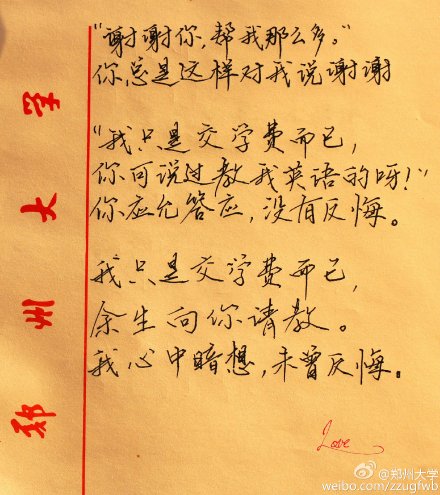 “谢谢你,帮我那么多。”
你总是这样对我说谢谢
“我只是交学费而已,
你可说过教我英语的呀!”
你应允答应,没有反悔。
我只是交学费而已,
余生向你请教。
我心中暗想,未曾反悔。
Love
郑州大学
@郑州大学
weibo.com/zzugfwb